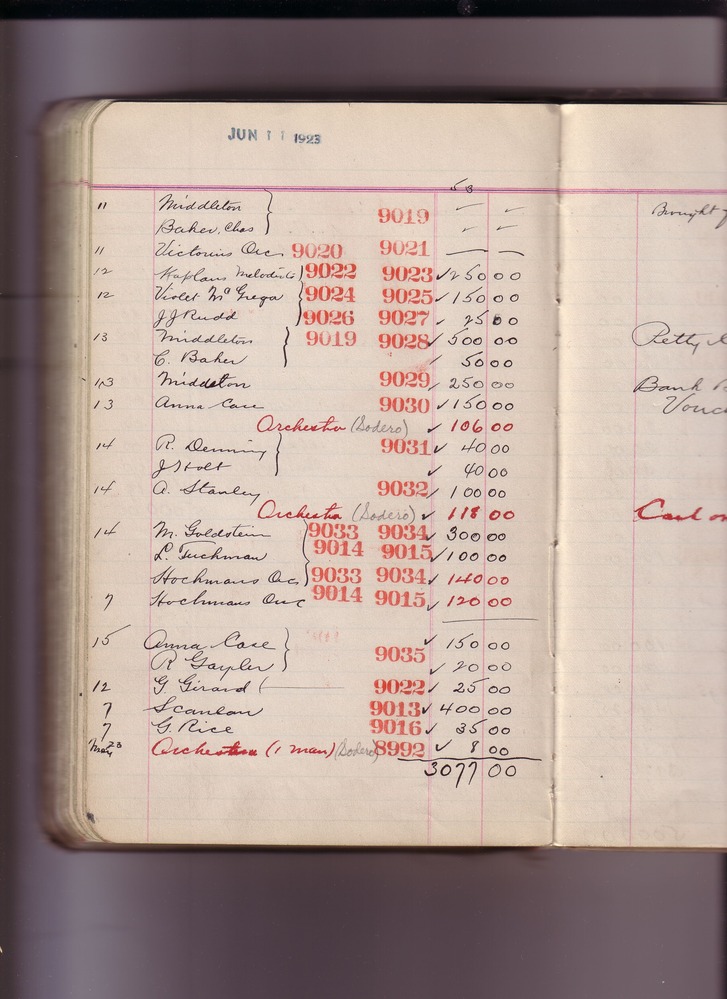 JUN 11 1923
53
11 Middleton } 9019 — —
Baker, Chas — —
11 Victorius Orc. 9020 9021 — —
12 Kaplans Melodists } 9022 9023 ✓ 250 00
12 Violet McGrega 9024 9025 ✓ 150 00
J J Rudd 9026 9027 ✓ 25 00
13 Middleton } 9019 9028 ✓ 500 00
C. Baker ✓ 50 00
13 Middleton 9029 ✓ 250 00
13 Anna Case 9030 ✓ 150 00
Orchestra (Sodero) ✓ 106 00
14 R. Denning } 9031 ✓ 40 00
J Holt ✓ 40 00
14 A. Stanley 9032 ✓ 100 00
Orchestra (Sodero) ✓ 118 00
14 M. Goldstein } 9033 9034 ✓ 300 00
L. Tuchman 9014 9015 ✓ 100 00
Hochmans Orc 9033 9034 ✓ 140 00
7 Hochmans Orc 9014 9015 ✓ 120 00
15 Anna Case } 9035 ✓ 150 00
R Gayler ✓ 20 00
12 G. Girard 9022 ✓ 25 00
7 Scanlan 9013 ✓ 400 00
7 G. Rice 9016 ✓ 35 00
May 23 Orchestra (1 man) (Sodero) 8992 ✓ 8 00
3077 00
Brought
Petty
Bank
Vouc